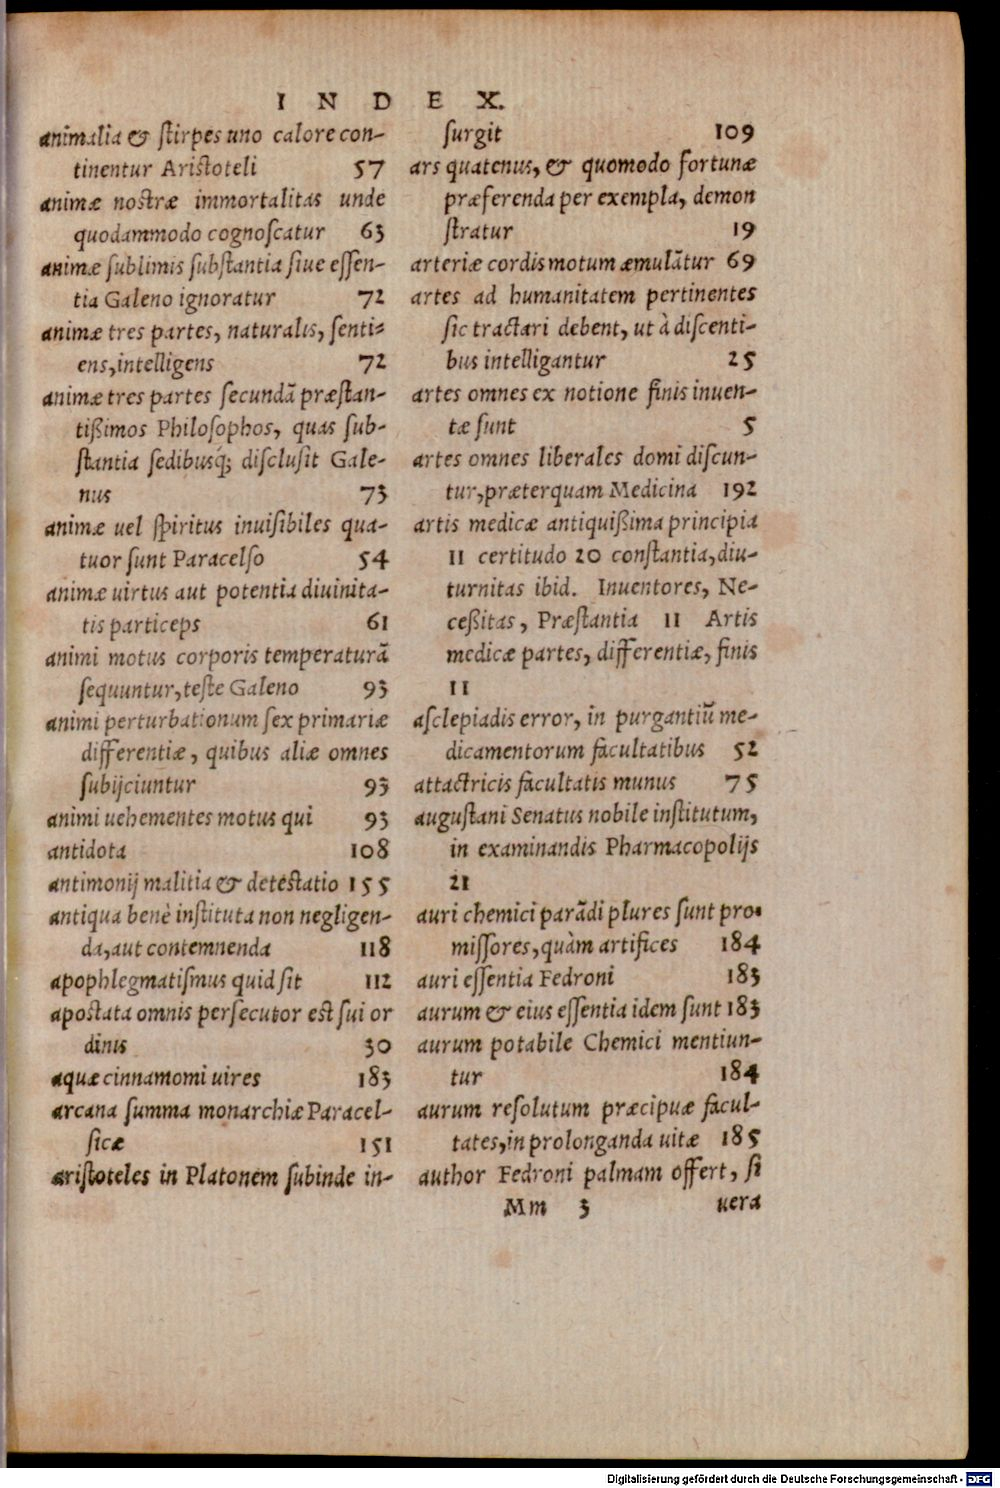 INDEX.
animalia & ſtirpes uno calore con-
tinentur Ariſtoteli 57
animæ noſtræ immortalitas unde
quodammodo cognoſcatur 63
animæ ſublimis ſubſtantia ſiue eſſen-
tia Galeno ignoratur 72
animæ tres partes, naturalis, ſenti-
ens,intelligens 72
animæ tres partes ſecundã præſtan-
tißimos Philoſophos, quas ſub-
ſtantia ſedibusq́; diſcluſit Gale-
nus 73
animæ uel ſpiritus inuiſibiles qua-
tuor ſunt Paracelſo 54
animæ uirtus aut potentia diuinita-
tis particeps 61
animi motus corporis temperaturã
ſequuntur,teſte Galeno 93
animi perturbationum ſex primariæ
differentiæ, quibus aliæ omnes
ſubijciuntur 93
animi uehementes motus qui 93
antidota 108
antimonij malitia & deteſtatio 155
antiqua benè inſtituta non negligen-
da,aut contemnenda 118
apophlegmatiſmus quid ſit 112
apoſtata omnis perſecutor eſt ſui or
dinis 30
aquæ cinnamomi uires 183
arcana ſumma monarchiæ Paracel-
ſicæ 151
ariſtoteles in Platonem ſubinde in-
ſurgit 109
ars quatenus, & quomodo fortunæ
præferenda per exempla, demon
ſtratur 19
arteriæ cordis motum æmulãtur 69
artes ad humanitatem pertinentes
ſic tractari debent, ut à diſcenti-
bus intelligantur 25
artes omnes ex notione finis inuen-
tæ ſunt 5
artes omnes liberales domi diſcun-
tur,præterquam Medicina 192
artis medicæ antiquißima principia
11 certitudo 20 conſtantia,diu-
turnitas ibid. Inuentores, Ne-
ceßitas, Præſtantia 11 Artis
medicæ partes, differentiæ, finis
11
aſclepiadis error, in purgantiũ me-
dicamentorum facultatibus 52
attactricis facultatis munus 75
auguſtani Senatus nobile inſtitutum,
in examinandis Pharmacopolijs
21
auri chemici parãdi plures ſunt pro-
miſſores,quàm artifices 184
auri eſſentia Fedroni 183
aurum & eius eſſentia idem ſunt 183
aurum potabile Chemici mentiun-
tur 184
aurum reſolutum præcipuæ facul-
tates,in prolonganda uitæ 185
author Fedroni palmam offert, ſi
Mm 3 uera
Digitalisierung gefördert durch die Deutsche Forschungsgemeinschaft - DFG